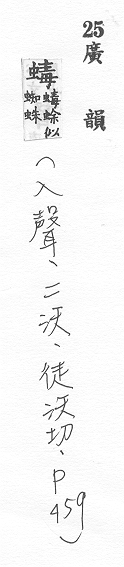 25廣韻
蝳蝳蜍似
蜘蛛
(入聲、二沃、徒沃切、P459)